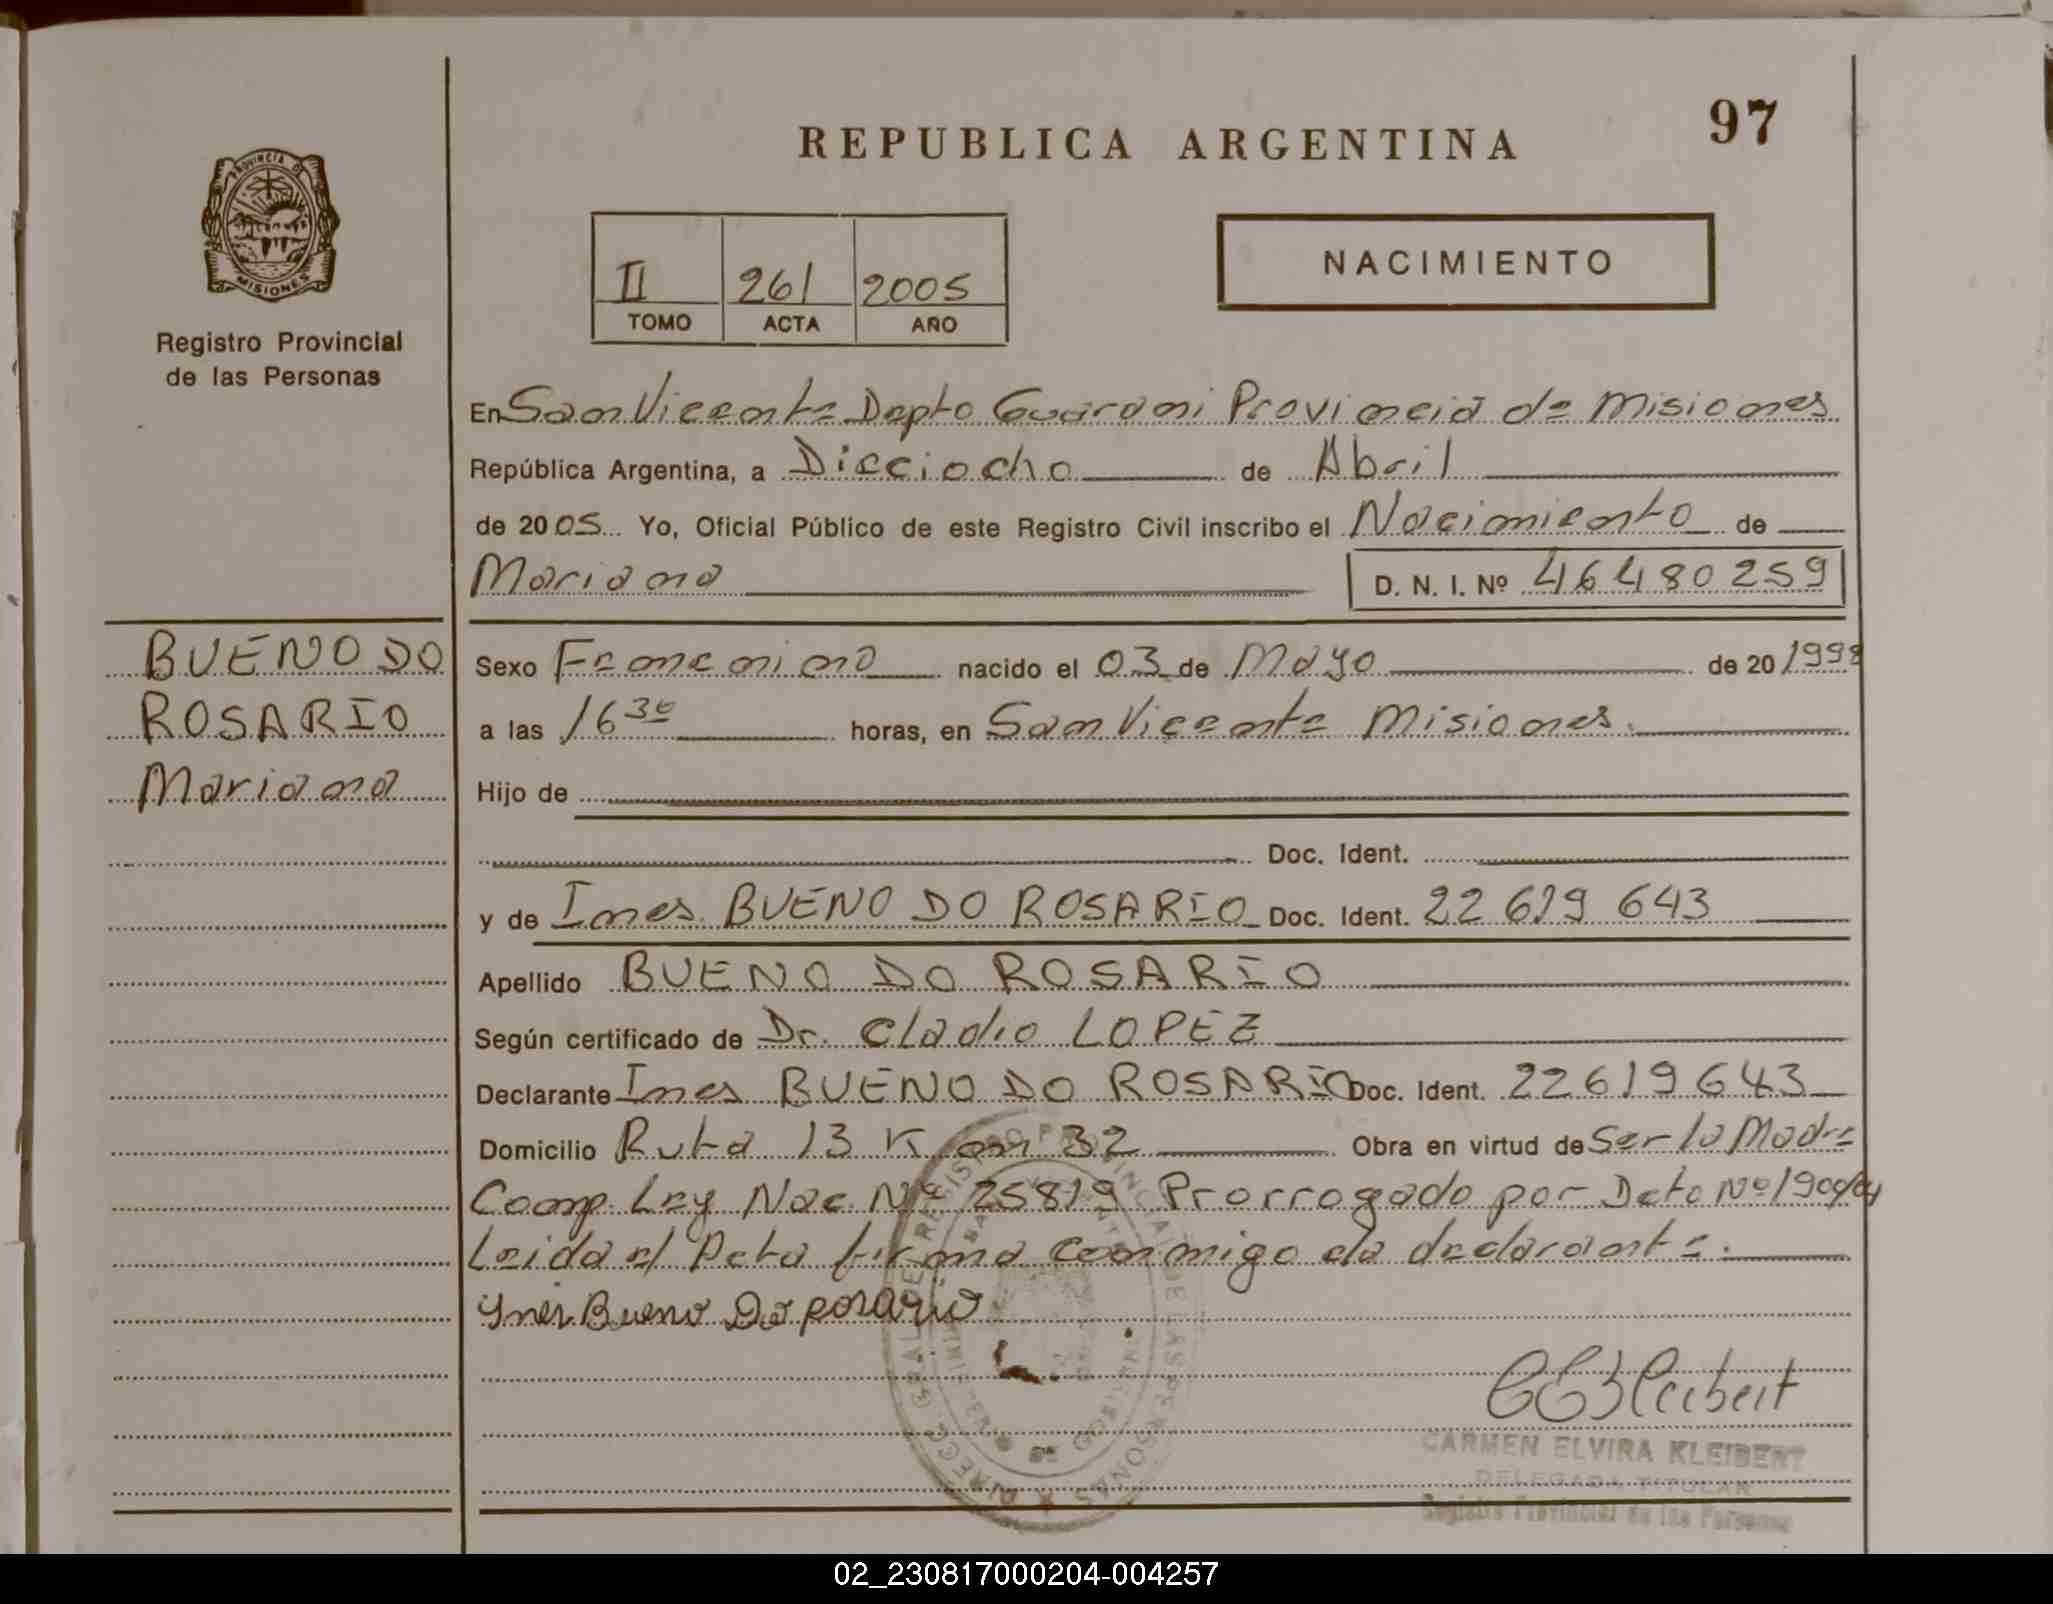 97
REPUBLICA ARGENTINA
PROVINCIA D
MISIONES
Registro Provincial
de las Personas
II 261 2005
TOMO ACTA AÑO
NACIMIENTO
En San Vicente Depto Guarani Provincia de Misiones
República Argentina, a Dieciocho de Abril
de 2005 Yo, Oficial Público de este Registro Civil inscribo el Nacimiento de
Mariana D. N. I. Nº 46480259
BUENO DO
ROSARIO
Mariana
Sexo Femenino nacido el 03 de Mayo de 20 1998
a las 16 30 horas, en San Vicente Misiones.
Hijo de
Doc. Ident.
y de Ines BUENO DO ROSARIO Doc. Ident. 22 619 643
Apellido BUENO DO ROSARIO
Según certificado de Dr. Cladio LOPEZ
Declarante Ines BUENO DO ROSARIO Doc. Ident. 22619643
Domicilio Ruta 13 Km 32 Obra en virtud de Ser la Madre
Comp. Ley Nac. Nº 25819 Prorrogado por Dcto Nº 190/04
Leida el Acta firma conmigo la declarante.
Ines Bueno Do rosario
CEKleibert
CARMEN ELVIRA KLEIBERT
DELEGADA TITULAR
Registro Provincial de las Personas
02_230817000204-004257